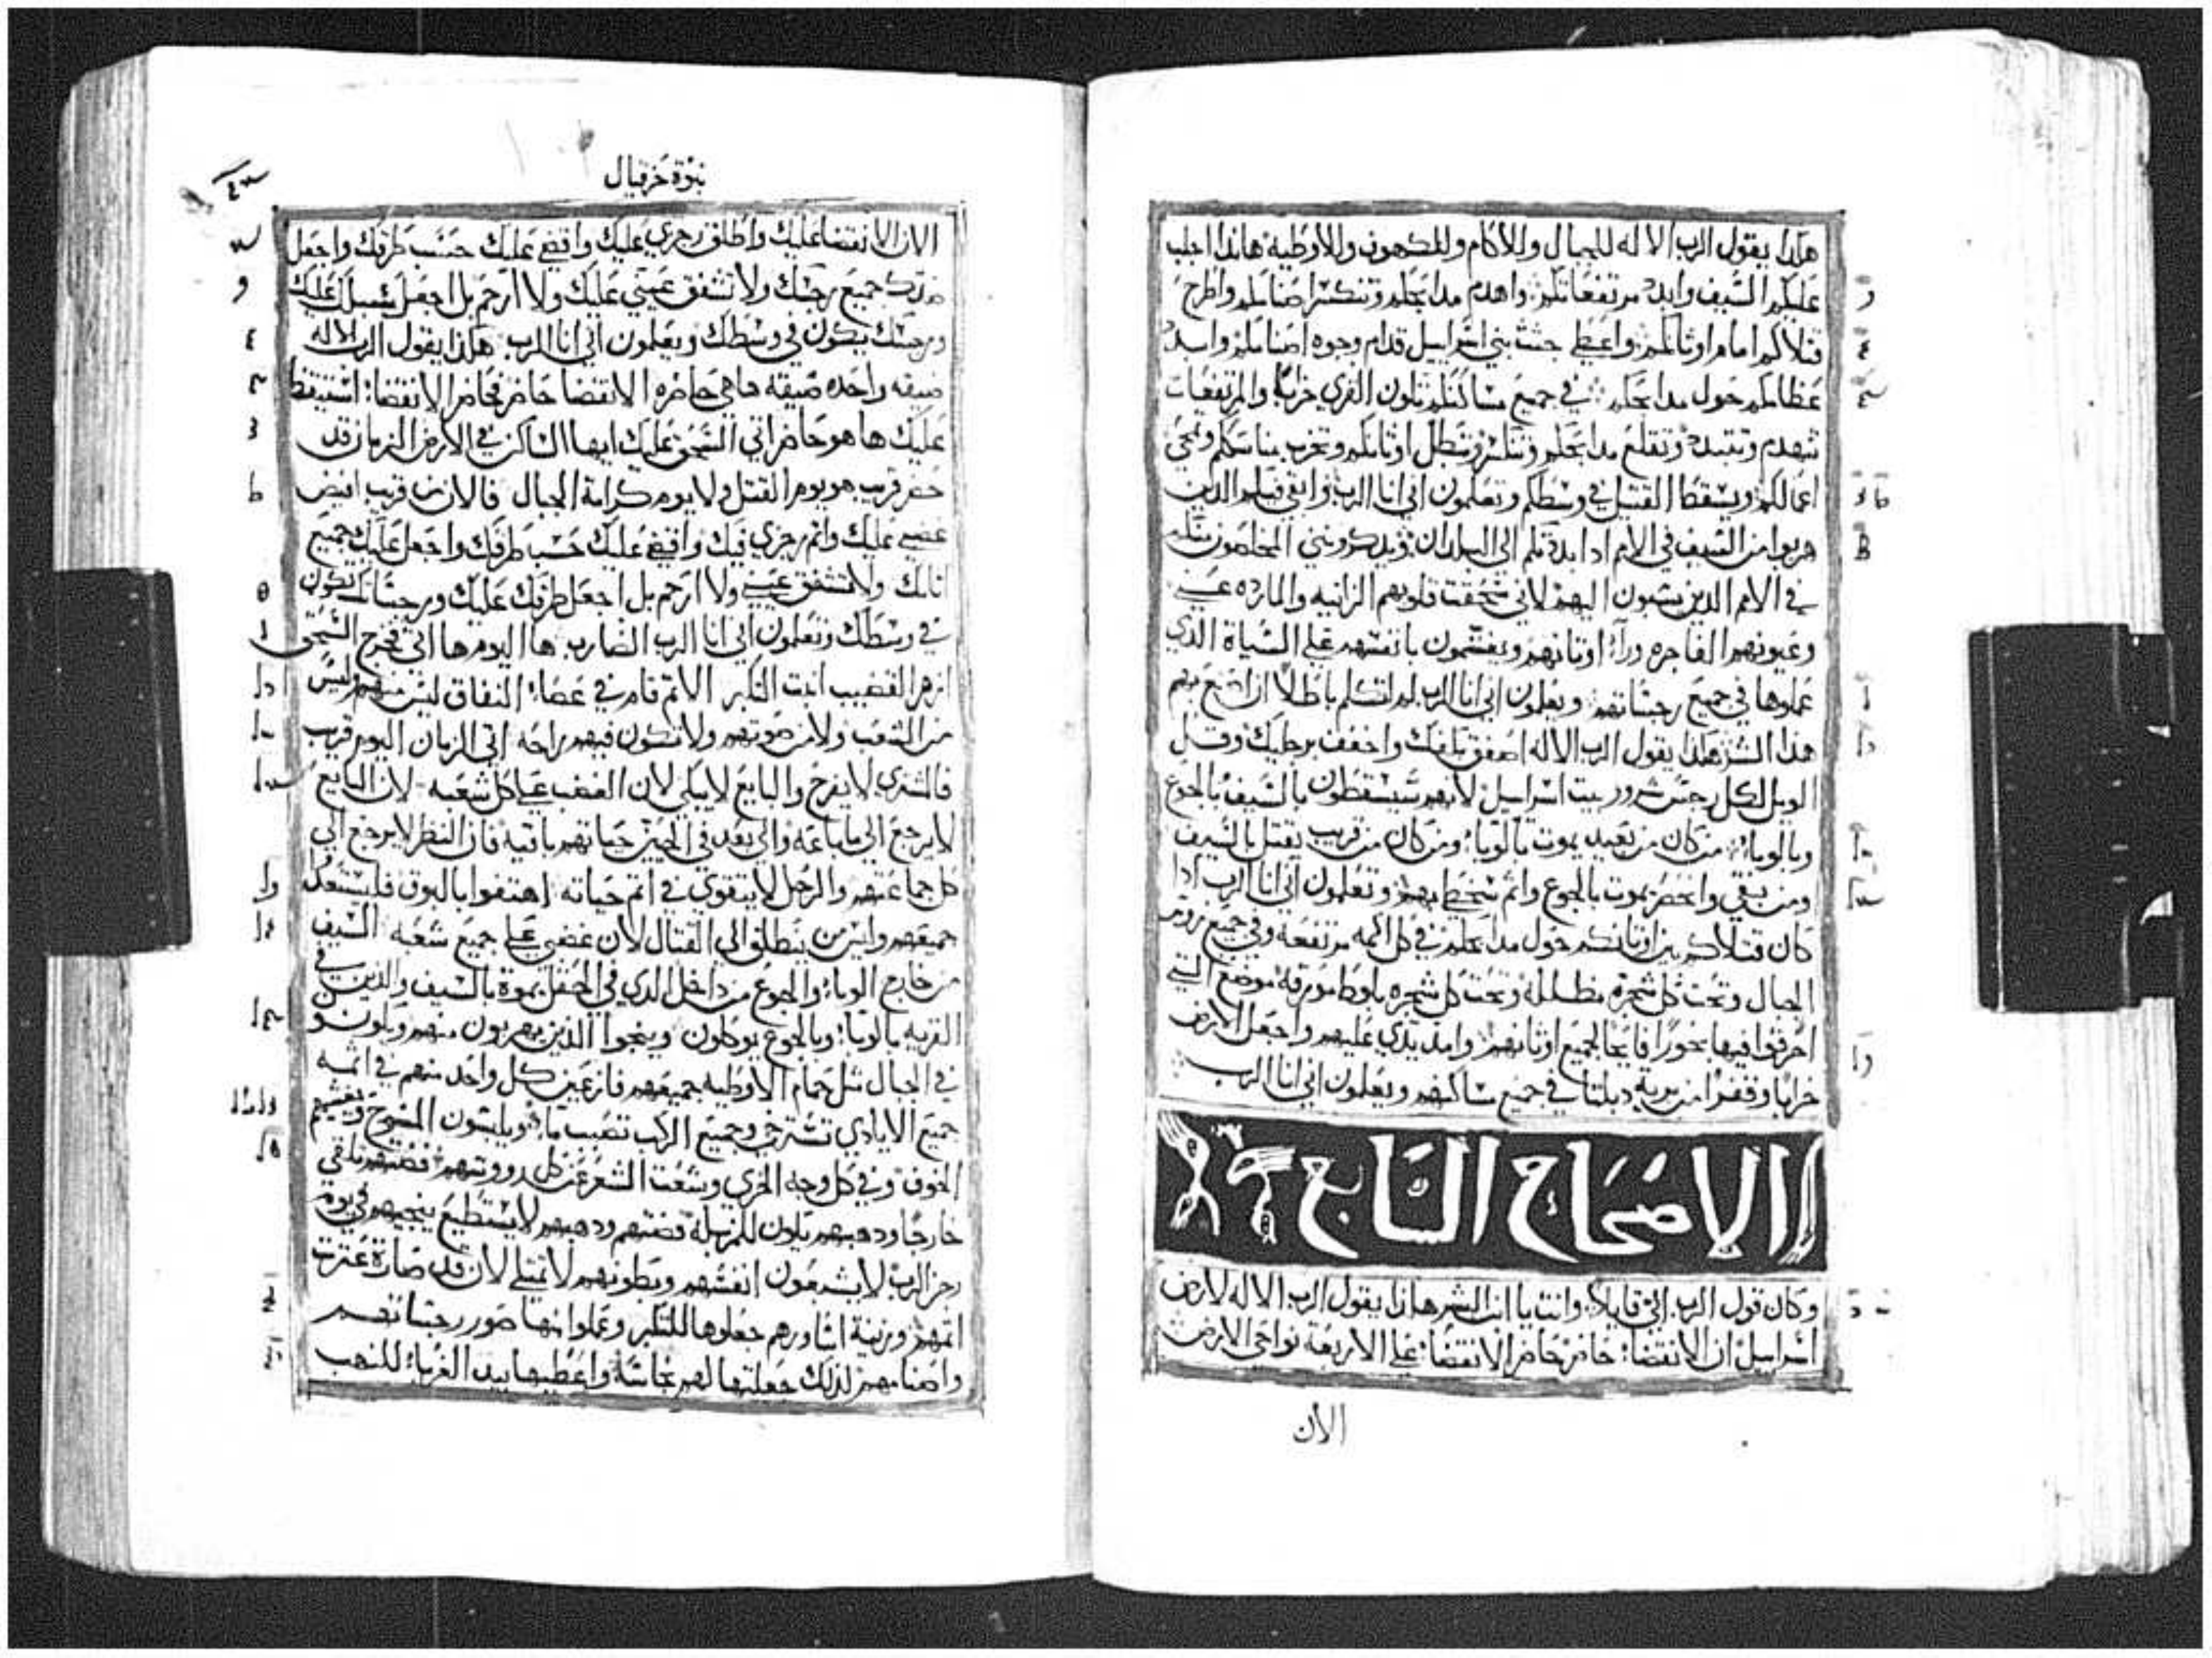 هكذا يقول الرب الاله للجبال وللاكام وللكهون وللاوطيه هانذا اجلب
عليكم السيف وابيد مرتفعاتكم واهدم مدابحكم وتنكسر اصنامكم واطرح
قتلاكم امام اوثانكم واعطي جثث بني اسراييل قدام وجوه اصنامكم وابدد
عظامكم حول مدابحكم في جميع مساكنكم تكون القري خرابا والمرتفعات
تنهدم وتتبدد وتقلع مدابحكم وتنكسر وتبطل اوثانكم وتخرب مناسككم وتمحي
اعمالكم ويسقط القتيل في وسطكم وتعلمون اني انا الرب وابقي فيكم الدين
هربوا من السيف في الامم ادا بددتكم الي البلدان ويدكرونني المخلصون منكم
في الامم الدين سبيون اليهم لاني سحقت قلوبهم الزانيه والمارده عني
وعيونهم الفاجره وراء اوثانهم ويغتمون بانفسهم علي السياة الدي
عملوها في جميع رجساتهم ويعلمون اني انا الرب لم اتكلم باطلا ان اصنع بهم
هذا الشر هكذا يقول الرب الاله اصفق بكفك واخفف برجليك وقل
الويل لكل رجس شرور بيت اسراييل لانهم سيسقطون بالسيف بالجوع
وبالوباء من كان من بعيد يموت بالوباء ومن كان من قريب يقتل بالسيف
ومن بقي وانحصر يموت بالجوع واتم سخطي بهم وتعلمون اني انا الرب ادا
كان قتلاكم بين اوثانكم حول مدابحكم في كل اكمه مرتفعه وفي جميع روس
الجبال وتحت كل شجرة مظلله وتحت كل شجره بلوط مورقه موضع التي
احرقوا فيها بخورا فايحا لجميع اوثانهم وامد يدي عليهم واجعل الارض
خرابا وقفرا من برية دبلتا في جميع مساكنهم ويعلمون اني انا الرب
الاصحاح السابع
وكان قول الرب الي قايلا وانت يا ابن البشر هكذا يقول الرب الاله لارض
اسراييل ان الانقضاء حاضر حاضر الانقضاء علي الاربعة نواحي الارض
الان
نبوة حزقيال
الان الانقضا عليك واطلق رجزي عليك واقضي عليك حسب طرقك واجعل
ضدك جميع رجسك ولا تشفق عيني عليك ولا ارحم بل اجعل سبلك عليك
ورجسك يكون في وسطك ويعلمون اني انا الرب هكذا يقول الرب الاله
ضيقه واحده ضيقه هاهي حاضره الانقضا حاضر حاضر الانقضا استيقظ
عليك ها هو حاضر اتي السحق عليك ايها الساكن في الارض الزمان قد
حضر قريب هو يوم القتل ولا يوم كرامة الجبال فالان من قريب افيض
غضبي عليك واتم رجزي فيك واقضي عليك حسب طرقك واجعل عليك جميع
اثامك ولا تشفق عيني ولا ارحم بل اجعل طرقك عليك ورجساتك تكون
في وسطك وتعلمون اني انا الرب الضارب ها اليوم ها اتي فخرج السحق
ازهر القضيب انبت التكبر الاثم قام في عصاء النفاق ليس منهم وليس
من الشعب ولا من صوتهم ولا تكون فيهم راحه اتي الزمان اليوم قريب
فالمشتري لا يفرح والبايع لا يبكي لان الغضب علي كل شعبه لان البايع
لا يرجع الي ما باعه والي بعد في الحيين حياتهم باقيه فان النظر لا يرجع الي
كل جماعتهم والرجل لا يتقوي في اثم حياته اهتفوا بالبوق فليستعد
جميعهم وليس من ينطلق الي القتال لان غضبي علي جميع شعبه السيف
من خارج الوباء والجوع من داخل الدي في الحقل يموت بالسيف والدين في
القريه بالوباء وبالجوع يوكلون وينجوا الدين يهربون منهم ويكونو
في الجبال مثل حمام الاوطيه جميعهم فازعين كل واحد منهم في اثمه
جميع الايادي تسترخي وجميع الركب تصبب ماء ويلبسون المسوح ويغشيهم
الخوف وفي كل وجه الخزي وشعت الشعر عن كل رووسهم فضتهم تلقي
خارجا ودهبهم يكون للمزبله فضتهم ودهبهم لا يستطيع ينجيهم في يوم
رجز الرب لا يشبعون انفسهم وبطونهم لا تمتلي لان قد صارة عثرت
اثمهم وزينة اساورهم جعلوها للتكبر وعملوا منها صور رجساتهم
واصنامهم لذلك جعلتها لهم نجاسة واعطيها بيد الغرباء للنهب